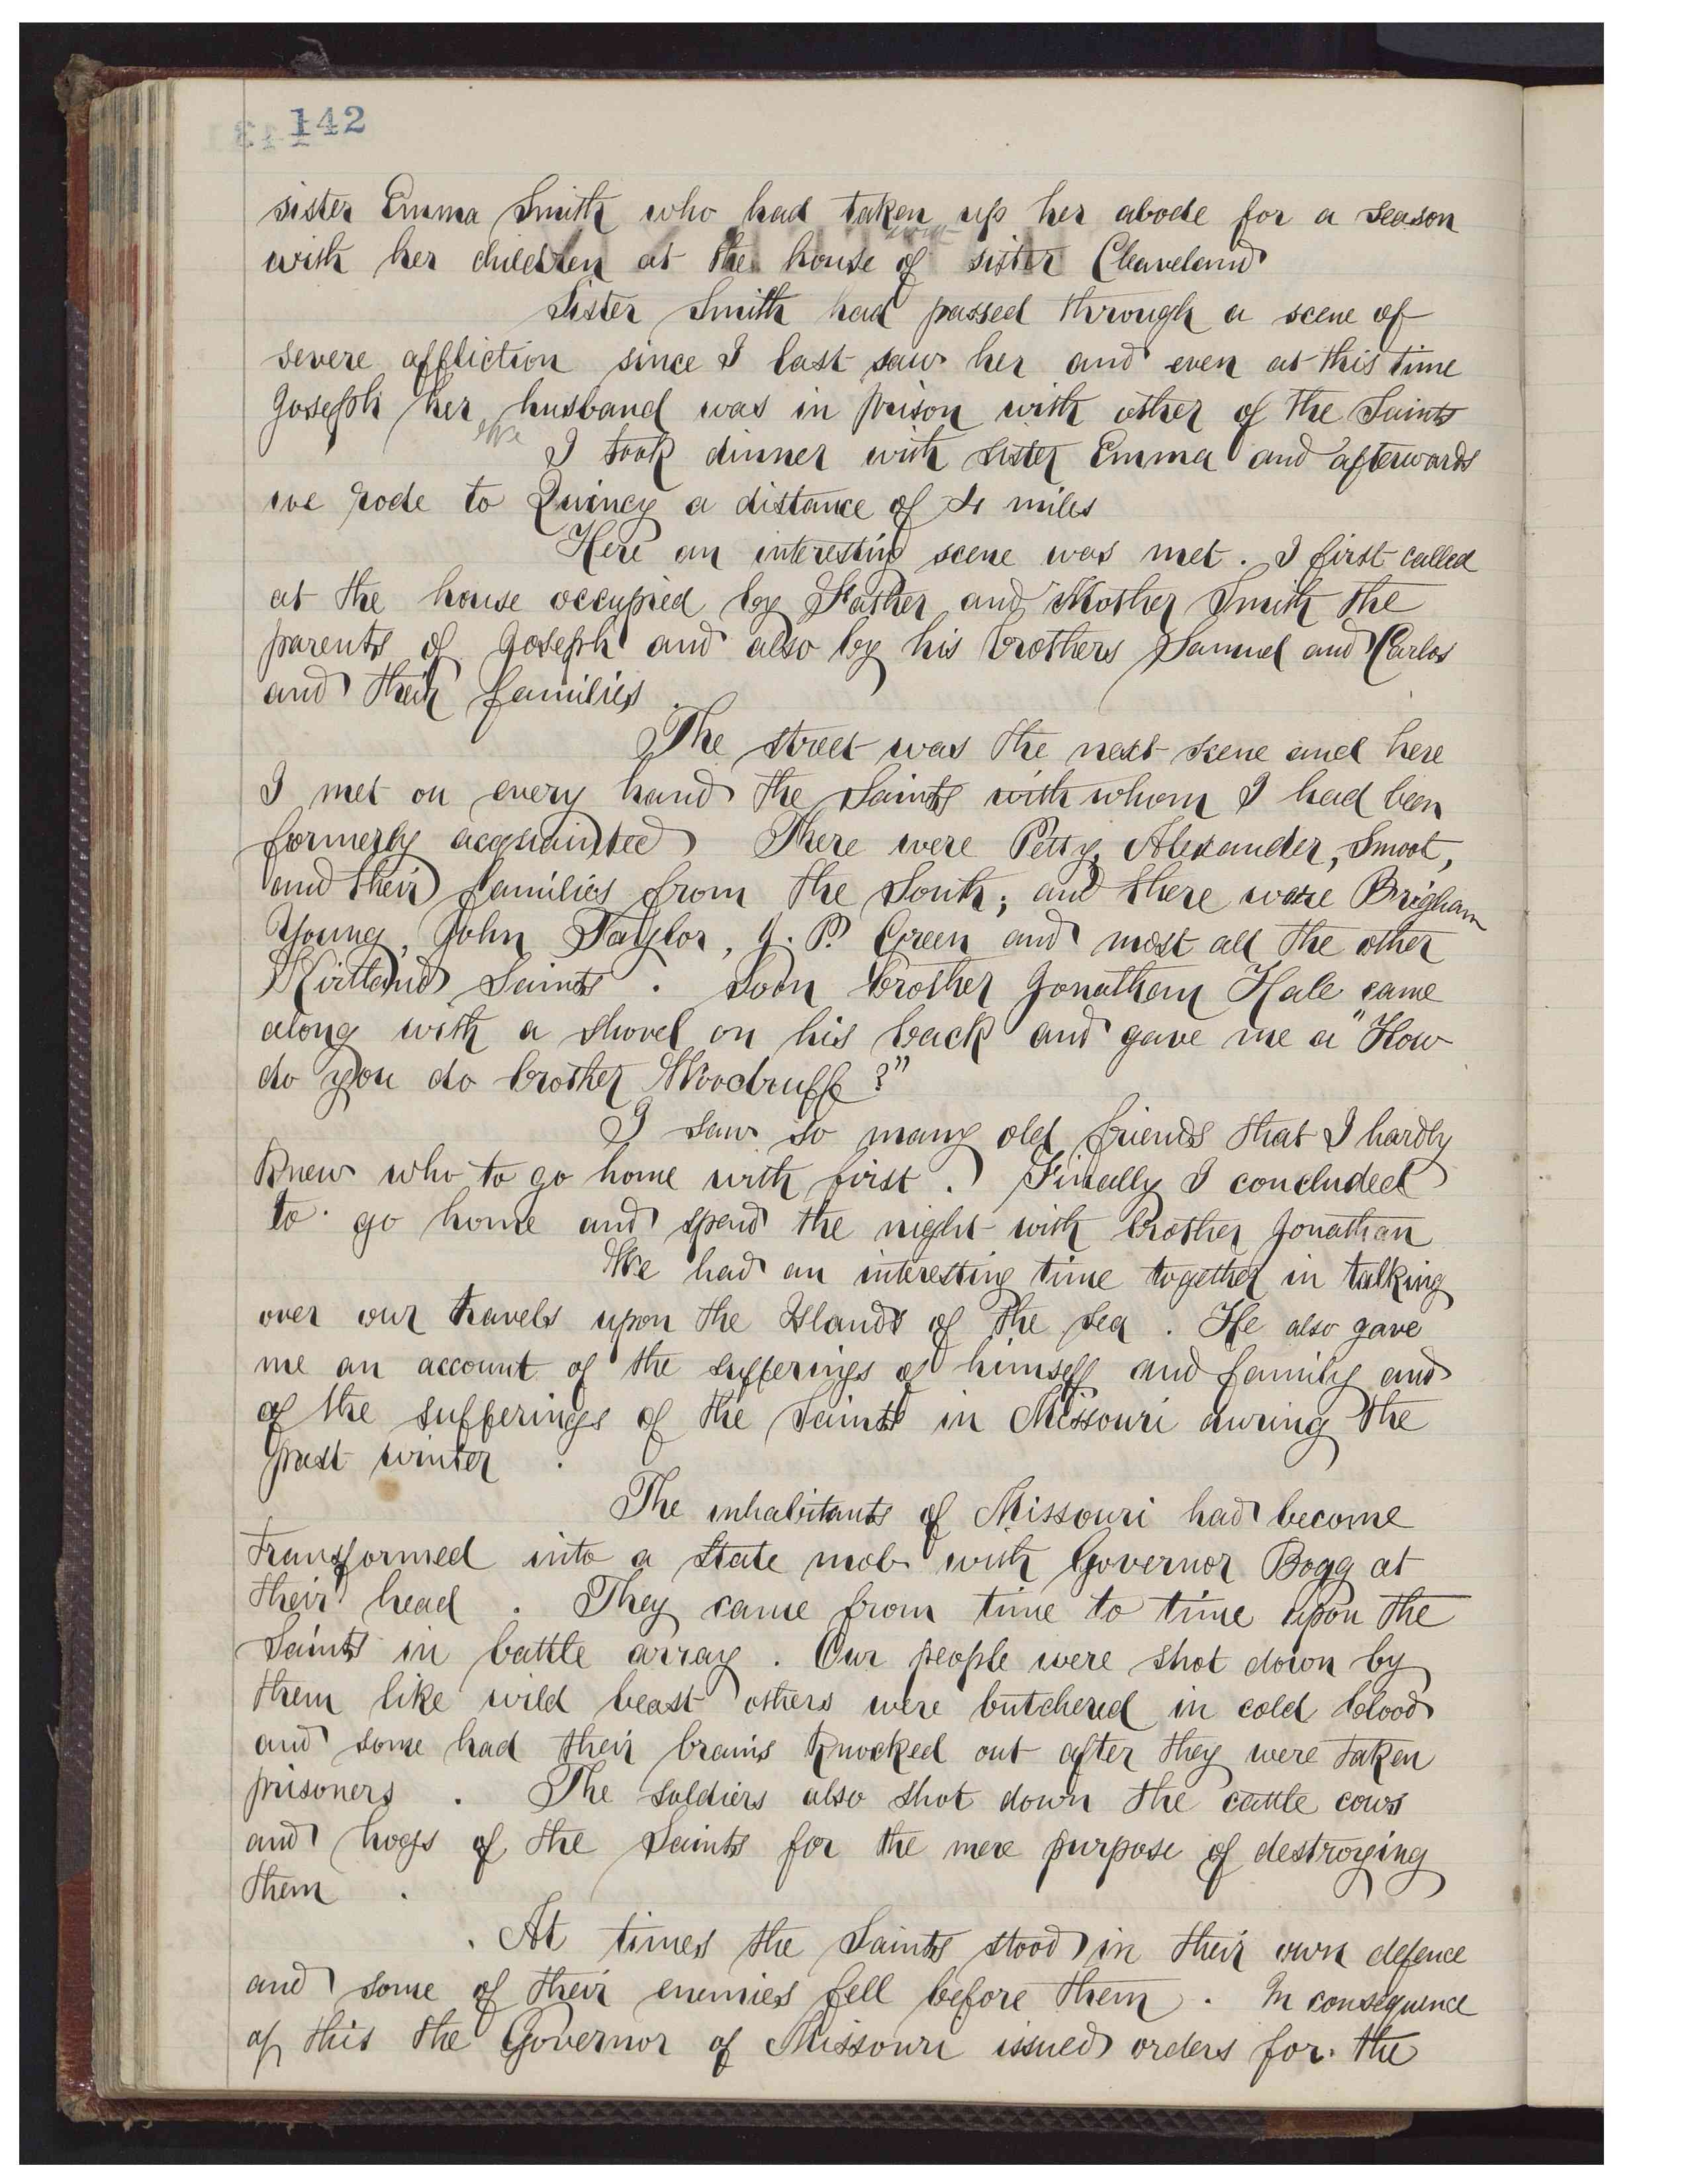 142
sister Emma Smith who had taken up her abode for a season
with her children at the house of sister Cleaveland
Sister Smith had passed through a scene of
severe affliction since I last saw her and even at this time
Joseph her husband was in prison with other of the Saints
We
I took dinner with sister Emma and afterwards
we rode to Quincy a distance of 4 miles
Here an interesting scene was met. I first called
at the house occupied by Father and Mother Smith the
parents of Joseph and also by his brothers Samuel and Carlos
and their families.
The street was the next scene and here
I met on every hand the Saints with whom I had been
formerly acquainted There were Petty, Alexander, Smoot,
and their families from the South; and there were Brigham
Young, John Taylor, J. P. Green and most all the other
Kirtland Saints. Soon brother Jonathan Hale came
along with a shovel on his back and gave me a "How
do you do brother Woodruff?"
I saw so many old friends that I hardly
knew who to go home with first. Finally I concluded
to go home and spend the night with brother Jonathan
We had an interesting time together in talking
over our travels upon the Islands of the sea. He also gave
me an account of the sufferings of himself and family and
of the sufferings of the Saints in Missouri during the
past winter.
The inhabitants of Missouri had become
transformed into a State mob with Governor Bogg at
their head. They came from time to time upon the
Saints in battle array. Our people were shot down by
them like wild beast others were butchered in cold blood
and some had their brains knocked out after they were taken
prisoners. The soldiers also shot down the cattle cows
and hogs of the Saints for the mere purpose of destroying
them.
At times the Saints stood in their own defence
and some of their enemies fell before them. In consequence
of this the Governor of Missouri issued orders for the